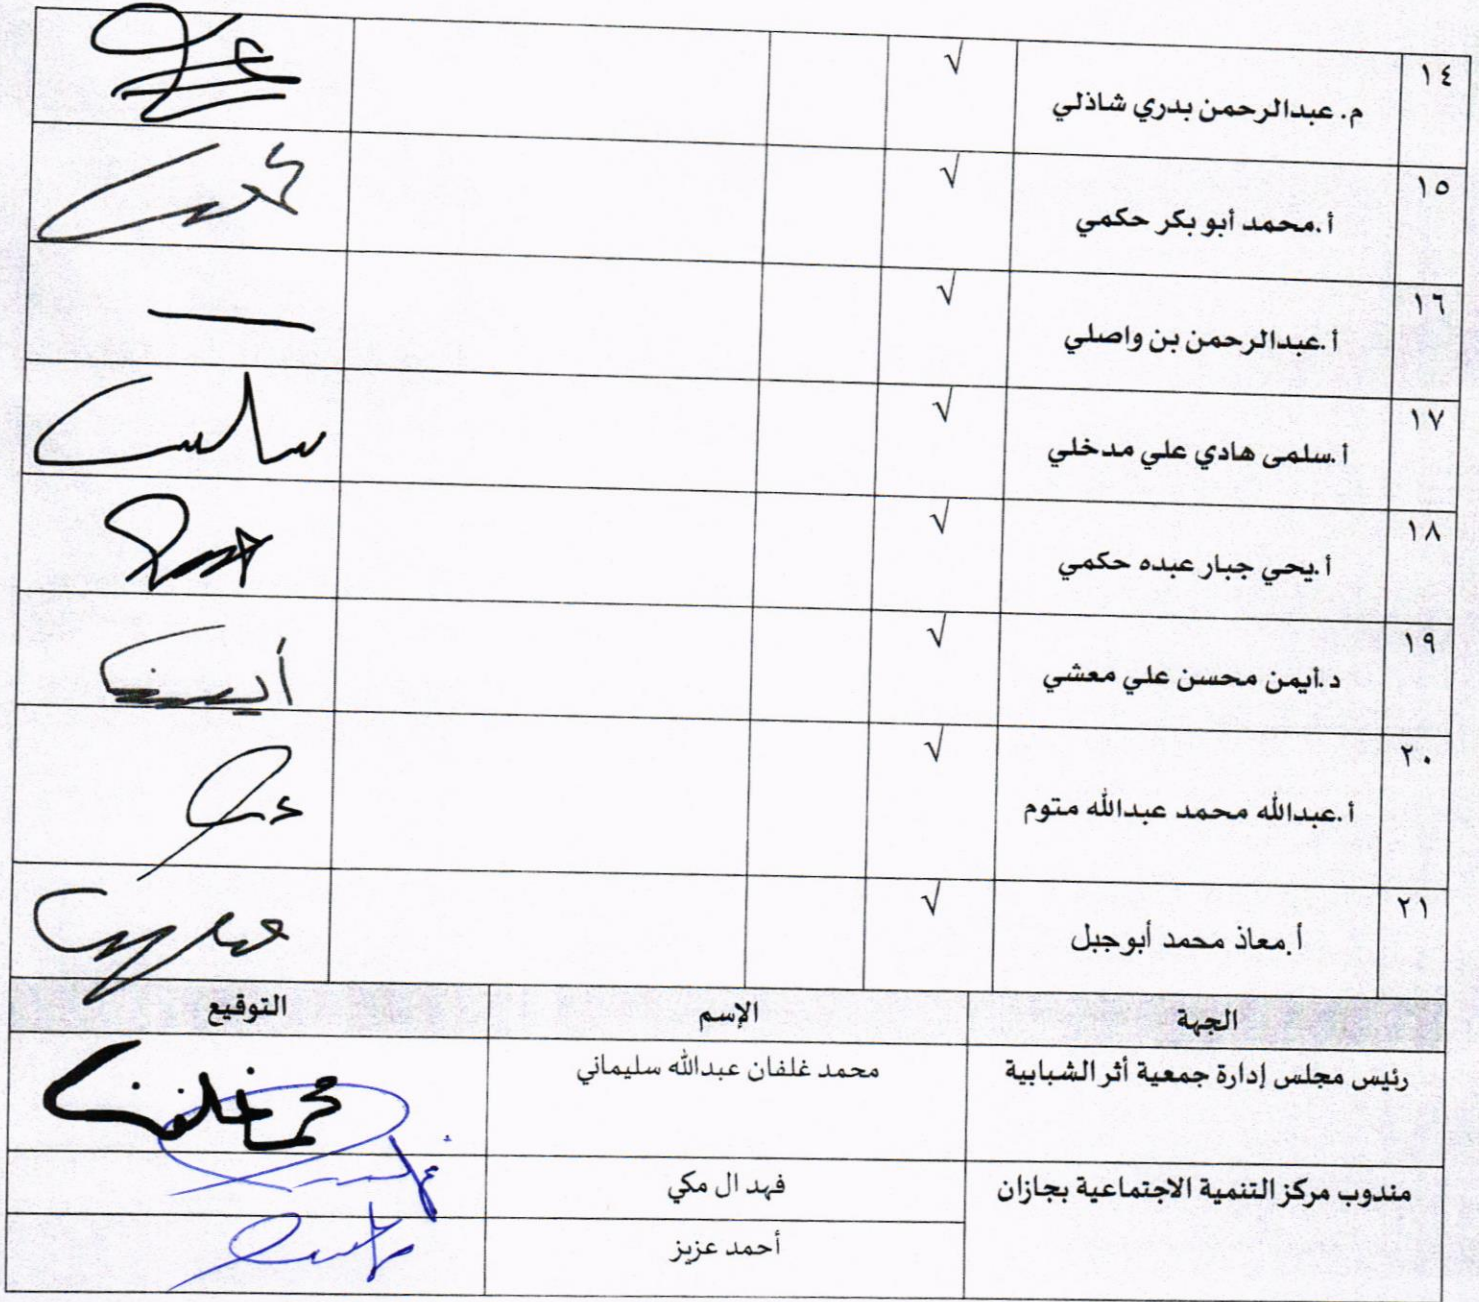 ١٤ م. عبدالرحمن بدري شاذلي √
١٥ أ.محمد أبو بكر حكمي √
١٦ أ.عبدالرحمن بن واصلي √
١٧ أ.سلمى هادي علي مدخلي √
١٨ أ.يحي جبار عبده حكمي √
١٩ د.أيمن محسن علي معشي √
٢٠ أ.عبدالله محمد عبدالله متوم √
٢١ أ.معاذ محمد أبوجبل √
الجهة الإسم التوقيع
رئيس مجلس إدارة جمعية أثر الشبابية محمد غلفان عبدالله سليماني
مندوب مركز التنمية الاجتماعية بجازان فهد ال مكي
أحمد عزيز